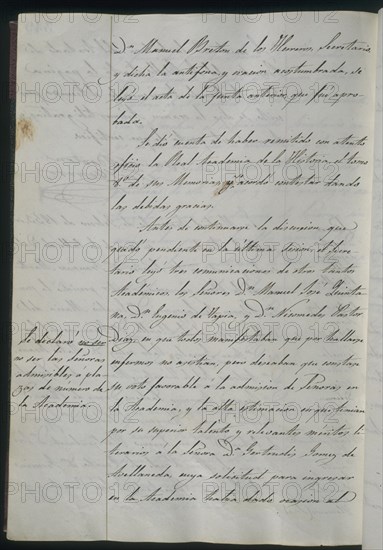 Dn. Manuel Breton de los Herreros, Secretario
y dicha la antifona y oracion acostumbrada, se
leyó el acta de la Junta anterior que fué apro-
bada.
Se dió cuenta de haber remitido con atento
oficio la Real Academia de la Historia el tomo
8.º de sus Memorias y se acordó contestar dando
las debidas gracias.
Antes de continuarse la discusion, que
quedó pendiente en la última sesion, el Secre-
tario leyó tres comunicaciones de otros tantos
Académicos los Señores Dn. Manuel José Quinta
na, Dn. Eugenio de Tapia, y Dn. Nicomedes Pastor
Diaz, en que todos manifestaban que por hallarse
enfermos no asistian, pero deseaban que constase
su voto favorable á la admision de Señoras en
la Academia, y la alta estimacion en que tenian
por su superior talento y relevantes méritos li-
terarios á la Señora Dª. Gertrudis Gomez de
Avellaneda cuya solicitud para ingresar
en la Academia habia dado ocasion al
Se declaró no ser
no ser las Señoras
admisibles a pla-
zas de número de
la Academia.
PHOTO12